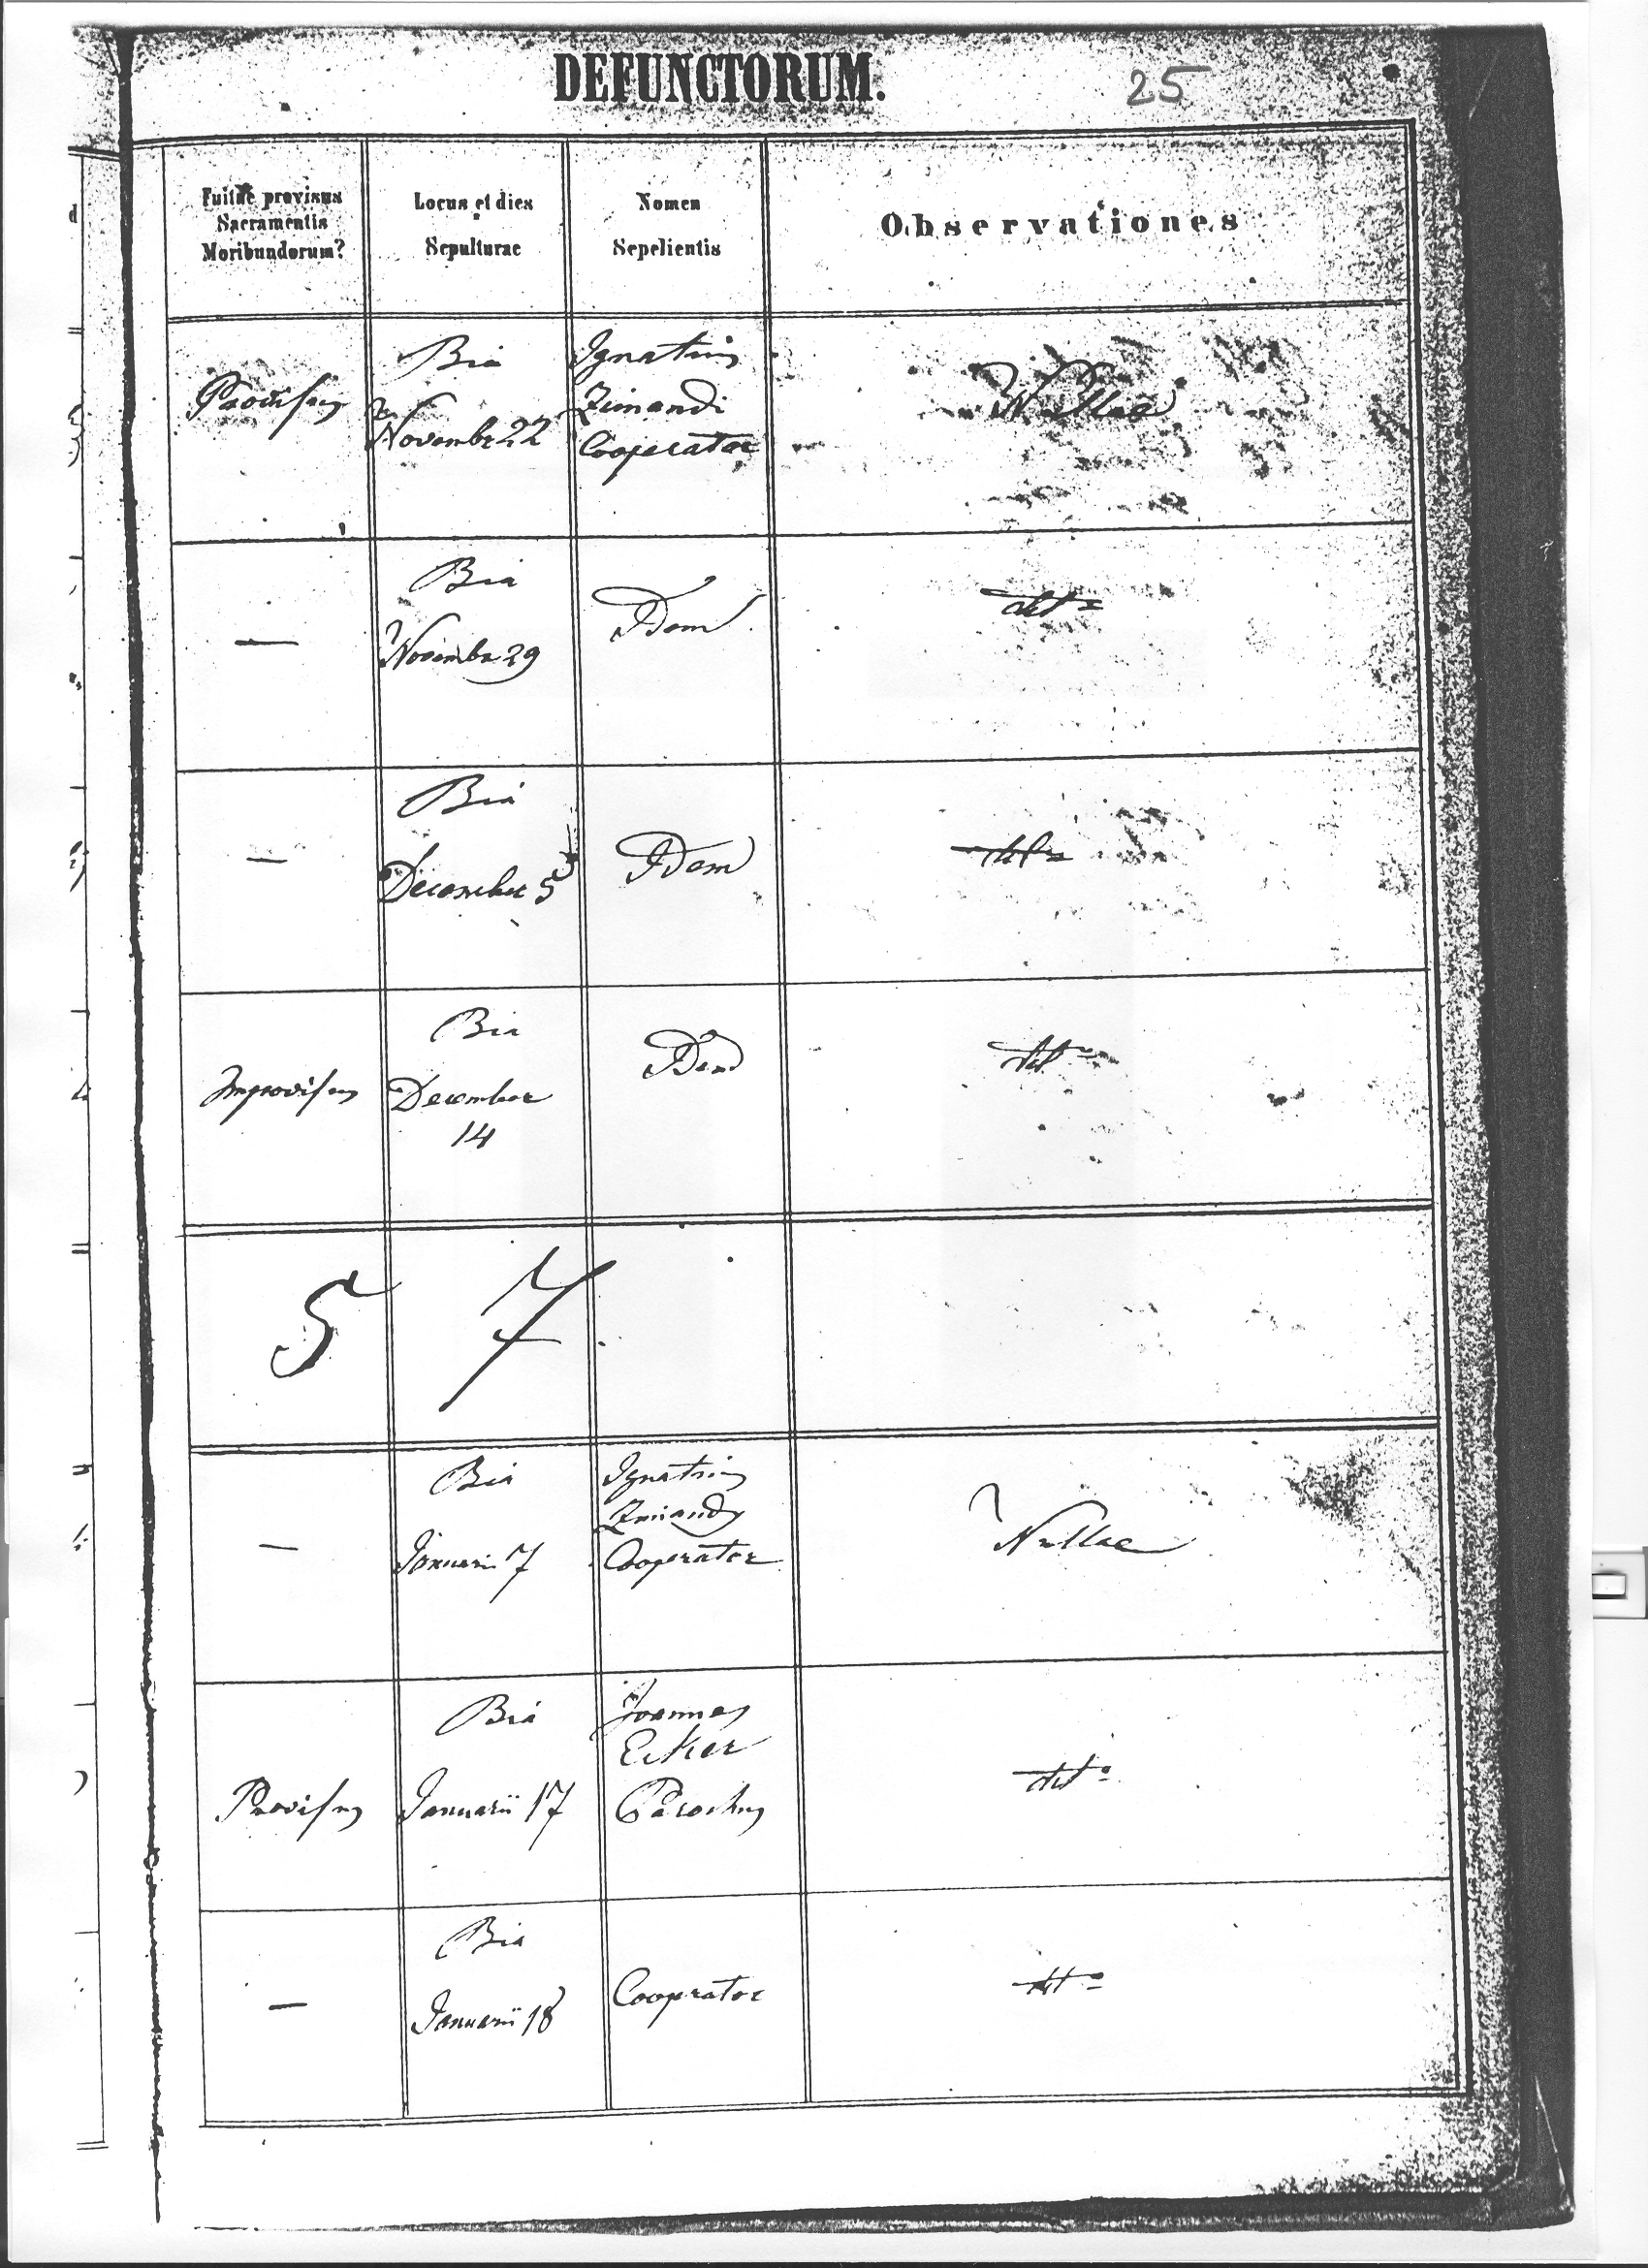 DEFUNCTORUM.
25
Fuitne provisus
Sacramentis
Moribundorum?
Locus et dies
Sepulturae
Nomen
Sepelientis
Observationes
Provisus
Bia
Novembr 22
Ignatius
Zimandi
Cooperator
Nullae
—
Bia
Novembr 29
Idem
dtto
—
Bia
December 5
Idem
dtto
Improvisus
Bia
December
14
Idem
dtto
5 7
—
Bia
Januarii 7
Ignatius
Zimandy
Cooperator
Nullae
Provisus
Bia
Januarii 17
Joannes
Ecker
Parochus
dtto
—
Bia
Januarii 18
Cooperator
dtto